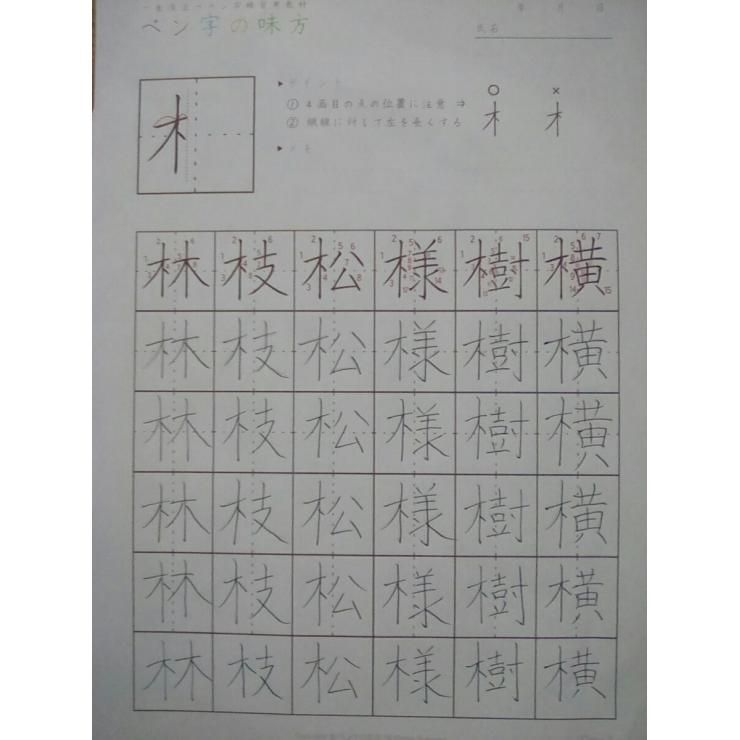 ペン字の味方
年 月 日
氏名
木
▶ポイント
① 4画目の点の位置に注意 ⇒
② 横線に対して左を長くする
○ ×
木 木
▶メモ
林 枝 松 様 樹 横
林 枝 松 様 樹 横
林 枝 松 様 樹 横
林 枝 松 様 樹 横
林 枝 松 様 樹 横
林 枝 松 様 樹 横